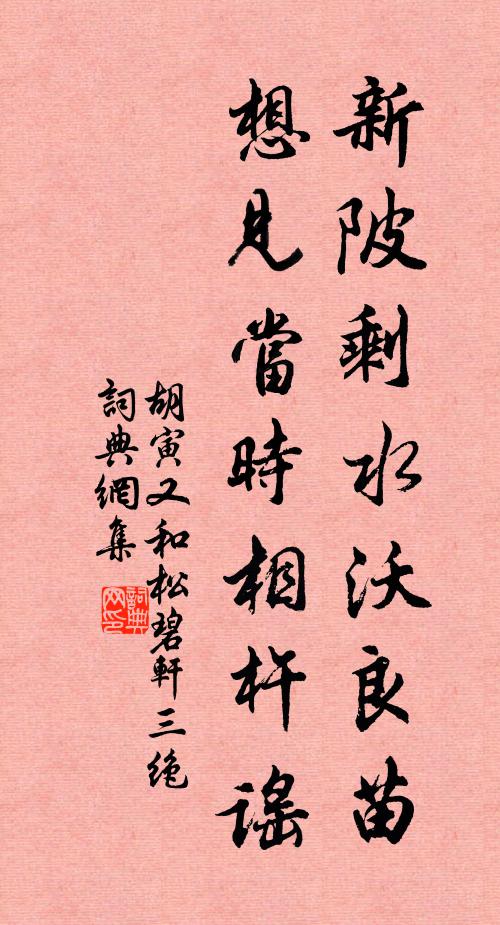 新陂剩水沃良苗
想見當時相杵謠
胡寅又和松碧軒三绝
詞典網集
詞典网印